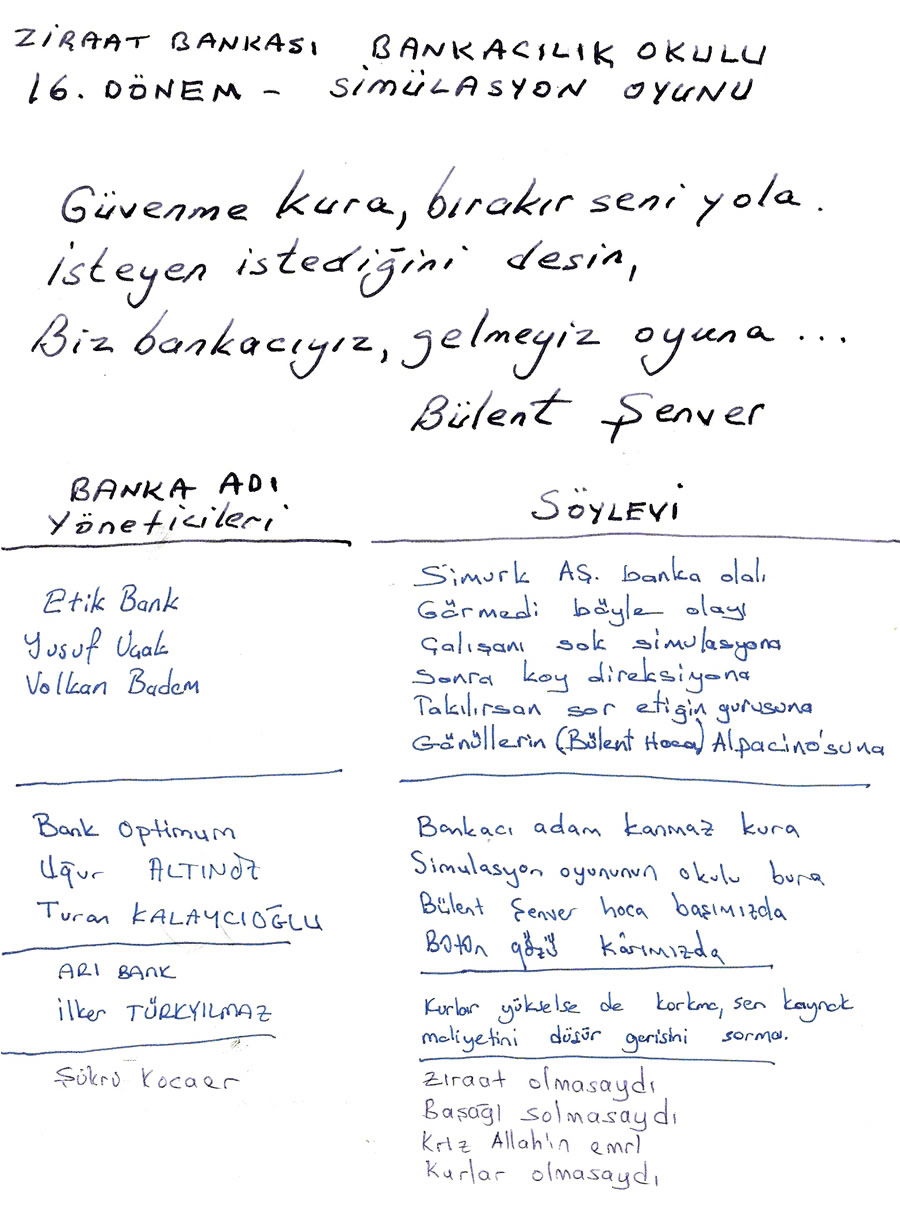 ZİRAAT BANKASI BANKACILIK OKULU
16. DÖNEM - SİMÜLASYON OYUNU
Güvenme kura, bırakır seni yola.
İsteyen istediğini desin,
Biz bankacıyız, gelmeyiz oyuna ...
Bülent Şenver
BANKA ADI
Yöneticileri
SÖYLEVİ
Etik Bank
Yusuf Uçak
Volkan Badem
Simurk AŞ. banka olalı
Görmedi böyle olayı
Çalışanı sok simulasyona
Sonra koy direksiyona
Takılırsan sor etiğin gurusuna
Gönüllerin (Bülent Hoca) Alpacino'suna
Bank Optimum
Uğur ALTINÖZ
Turan KALAYCIOĞLU
Bankacı adam kanmaz kura
Simulasyon oyununun okulu bura
Bülent Şenver hoca başımızda
Bütün gözü kârımızda
ARI BANK
İlker TÜRKYILMAZ
Kurlar yükselse de korkma, sen kaynak
maliyetini düşür gerisini sorma.
Şükrü Kocaer
Ziraat olmasaydı
Başağı solmasaydı
Kriz Allah'ın emri
Kurlar olmasaydı